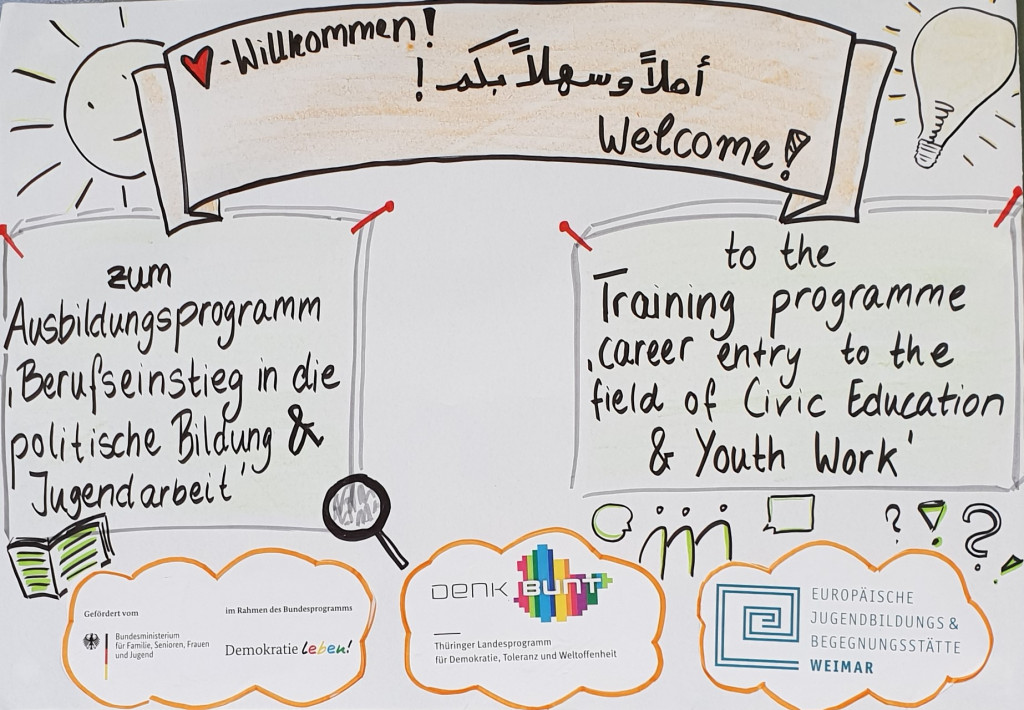 -Willkommen!
أهلاً وسهلاً بكم!
Welcome!
zum
Ausbildungsprogramm
‚Berufseinstieg in die
politische Bildung &
Jugendarbeit'
to the
Training programme
‚career entry to the
field of Civic Education
& Youth Work'
Gefördert vom
Bundesministerium
für Familie, Senioren, Frauen
und Jugend
im Rahmen des Bundesprogramms
Demokratie Leben!
DENK BUNT
Thüringer Landesprogramm
für Demokratie, Toleranz und Weltoffenheit
EUROPÄISCHE
JUGENDBILDUNGS &
BEGEGNUNGSSTÄTTE
WEIMAR